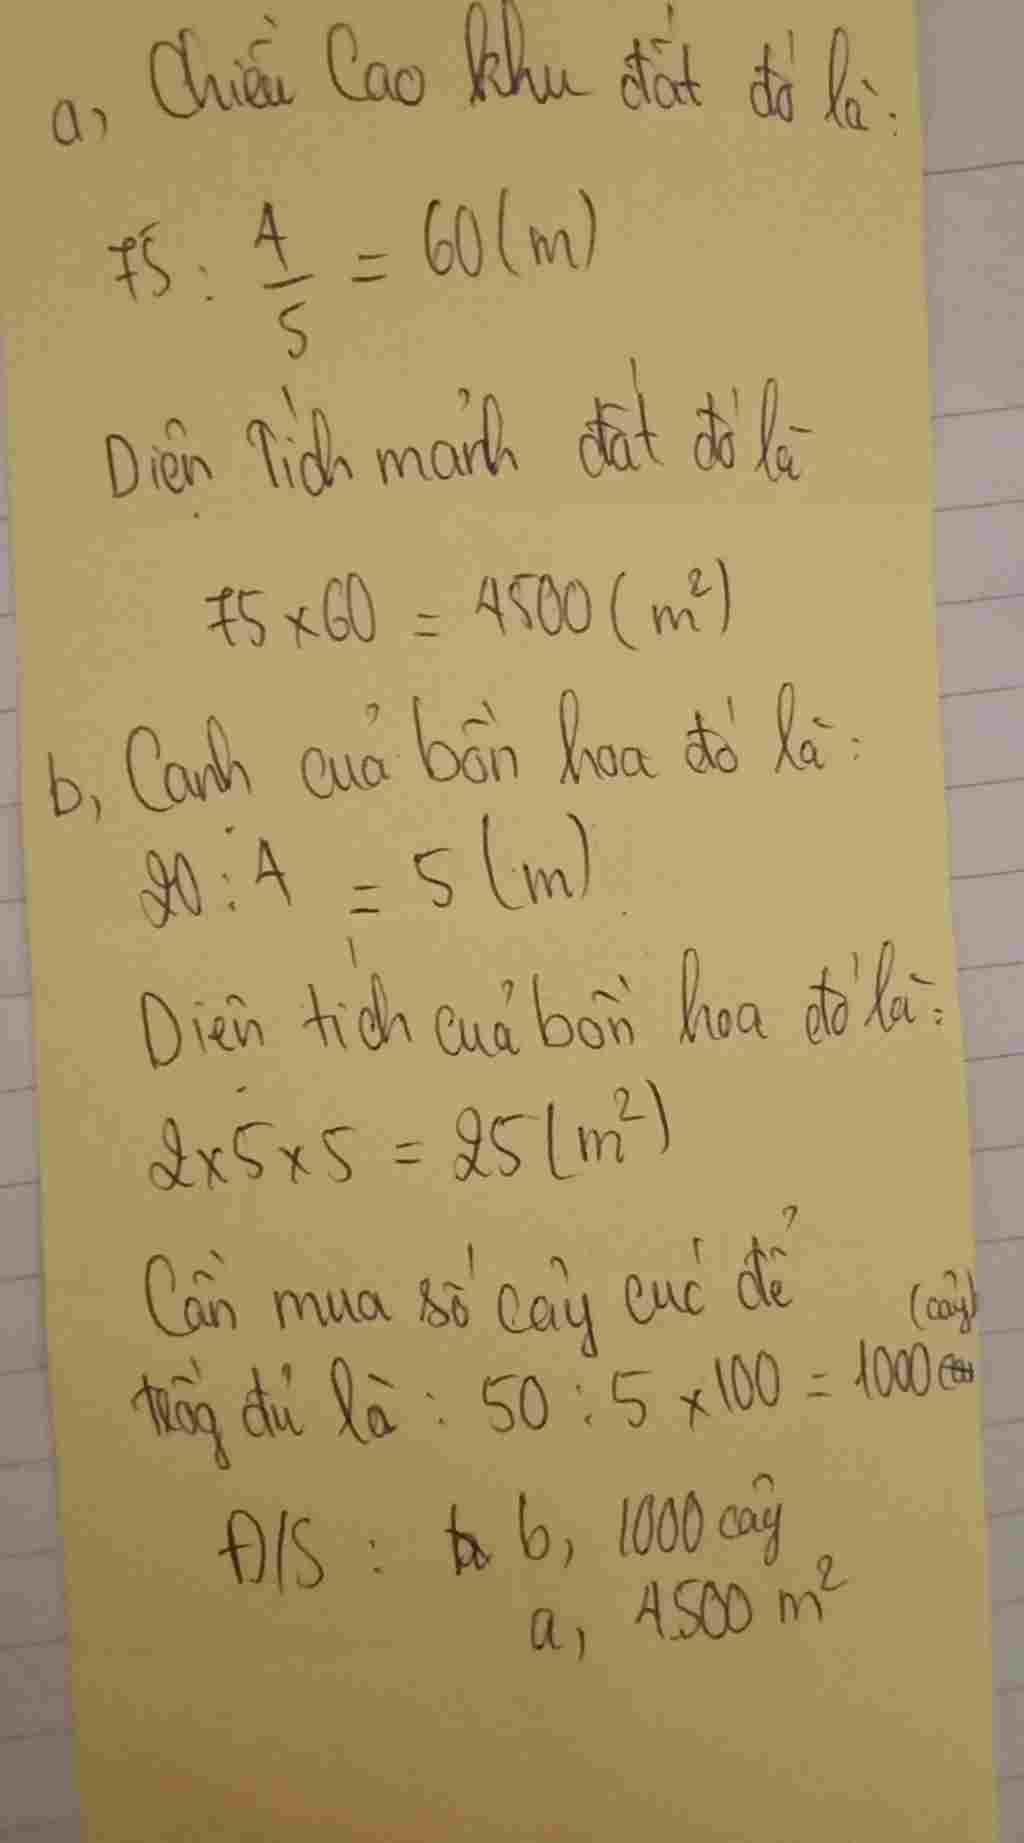 a, Chiều Cao khu đất đó là:
75 : 4/5 = 60 (m)
Diện Tích mảnh đất đó là
75 x 60 = 4500 (m²)
b, Cạnh của bồn hoa đó là:
20 : 4 = 5 (m)
Diện tích của bồn hoa đó là:
2 x 5 x 5 = 25 (m²)
Cần mua số cây cúc để
trồng đủ là : 50 : 5 x 100 = 1000 (cây)
Đ/S : b, 1000 cây
a, 4500 m²